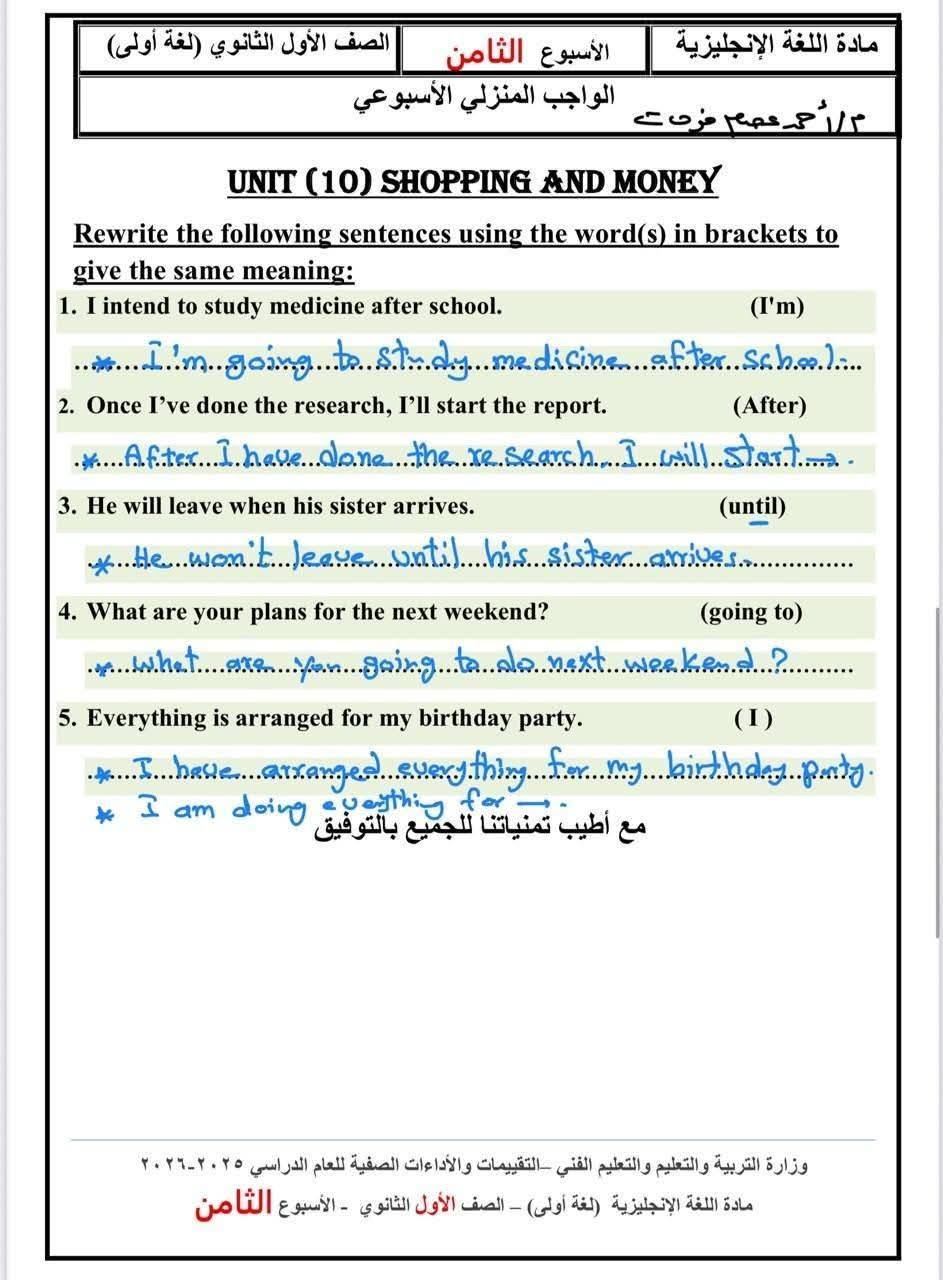 مادة اللغة الإنجليزية الأسبوع الثامن الصف الأول الثانوي (لغة أولى)
الواجب المنزلي الأسبوعي
م/أحمد
UNIT (10) SHOPPING AND MONEY
Rewrite the following sentences using the word(s) in brackets to
give the same meaning:
1. I intend to study medicine after school. (I'm)
* I'm going to study medicine after school.
2. Once I’ve done the research, I’ll start the report. (After)
* After I have done the research, I will start →.
3. He will leave when his sister arrives. (until)
* He won't leave until his sister arrives.
4. What are your plans for the next weekend? (going to)
* what are you going to do next weekend?
5. Everything is arranged for my birthday party. ( I )
* I have arranged everything for my birthday party.
* I am doing everything for →.
مع أطيب تمنياتنا للجميع بالتوفيق
وزارة التربية والتعليم والتعليم الفني –التقييمات والأداءات الصفية للعام الدراسي ٢٠٢٥-٢٠٢٦
مادة اللغة الإنجليزية (لغة أولى) – الصف الأول الثانوي - الأسبوع الثامن